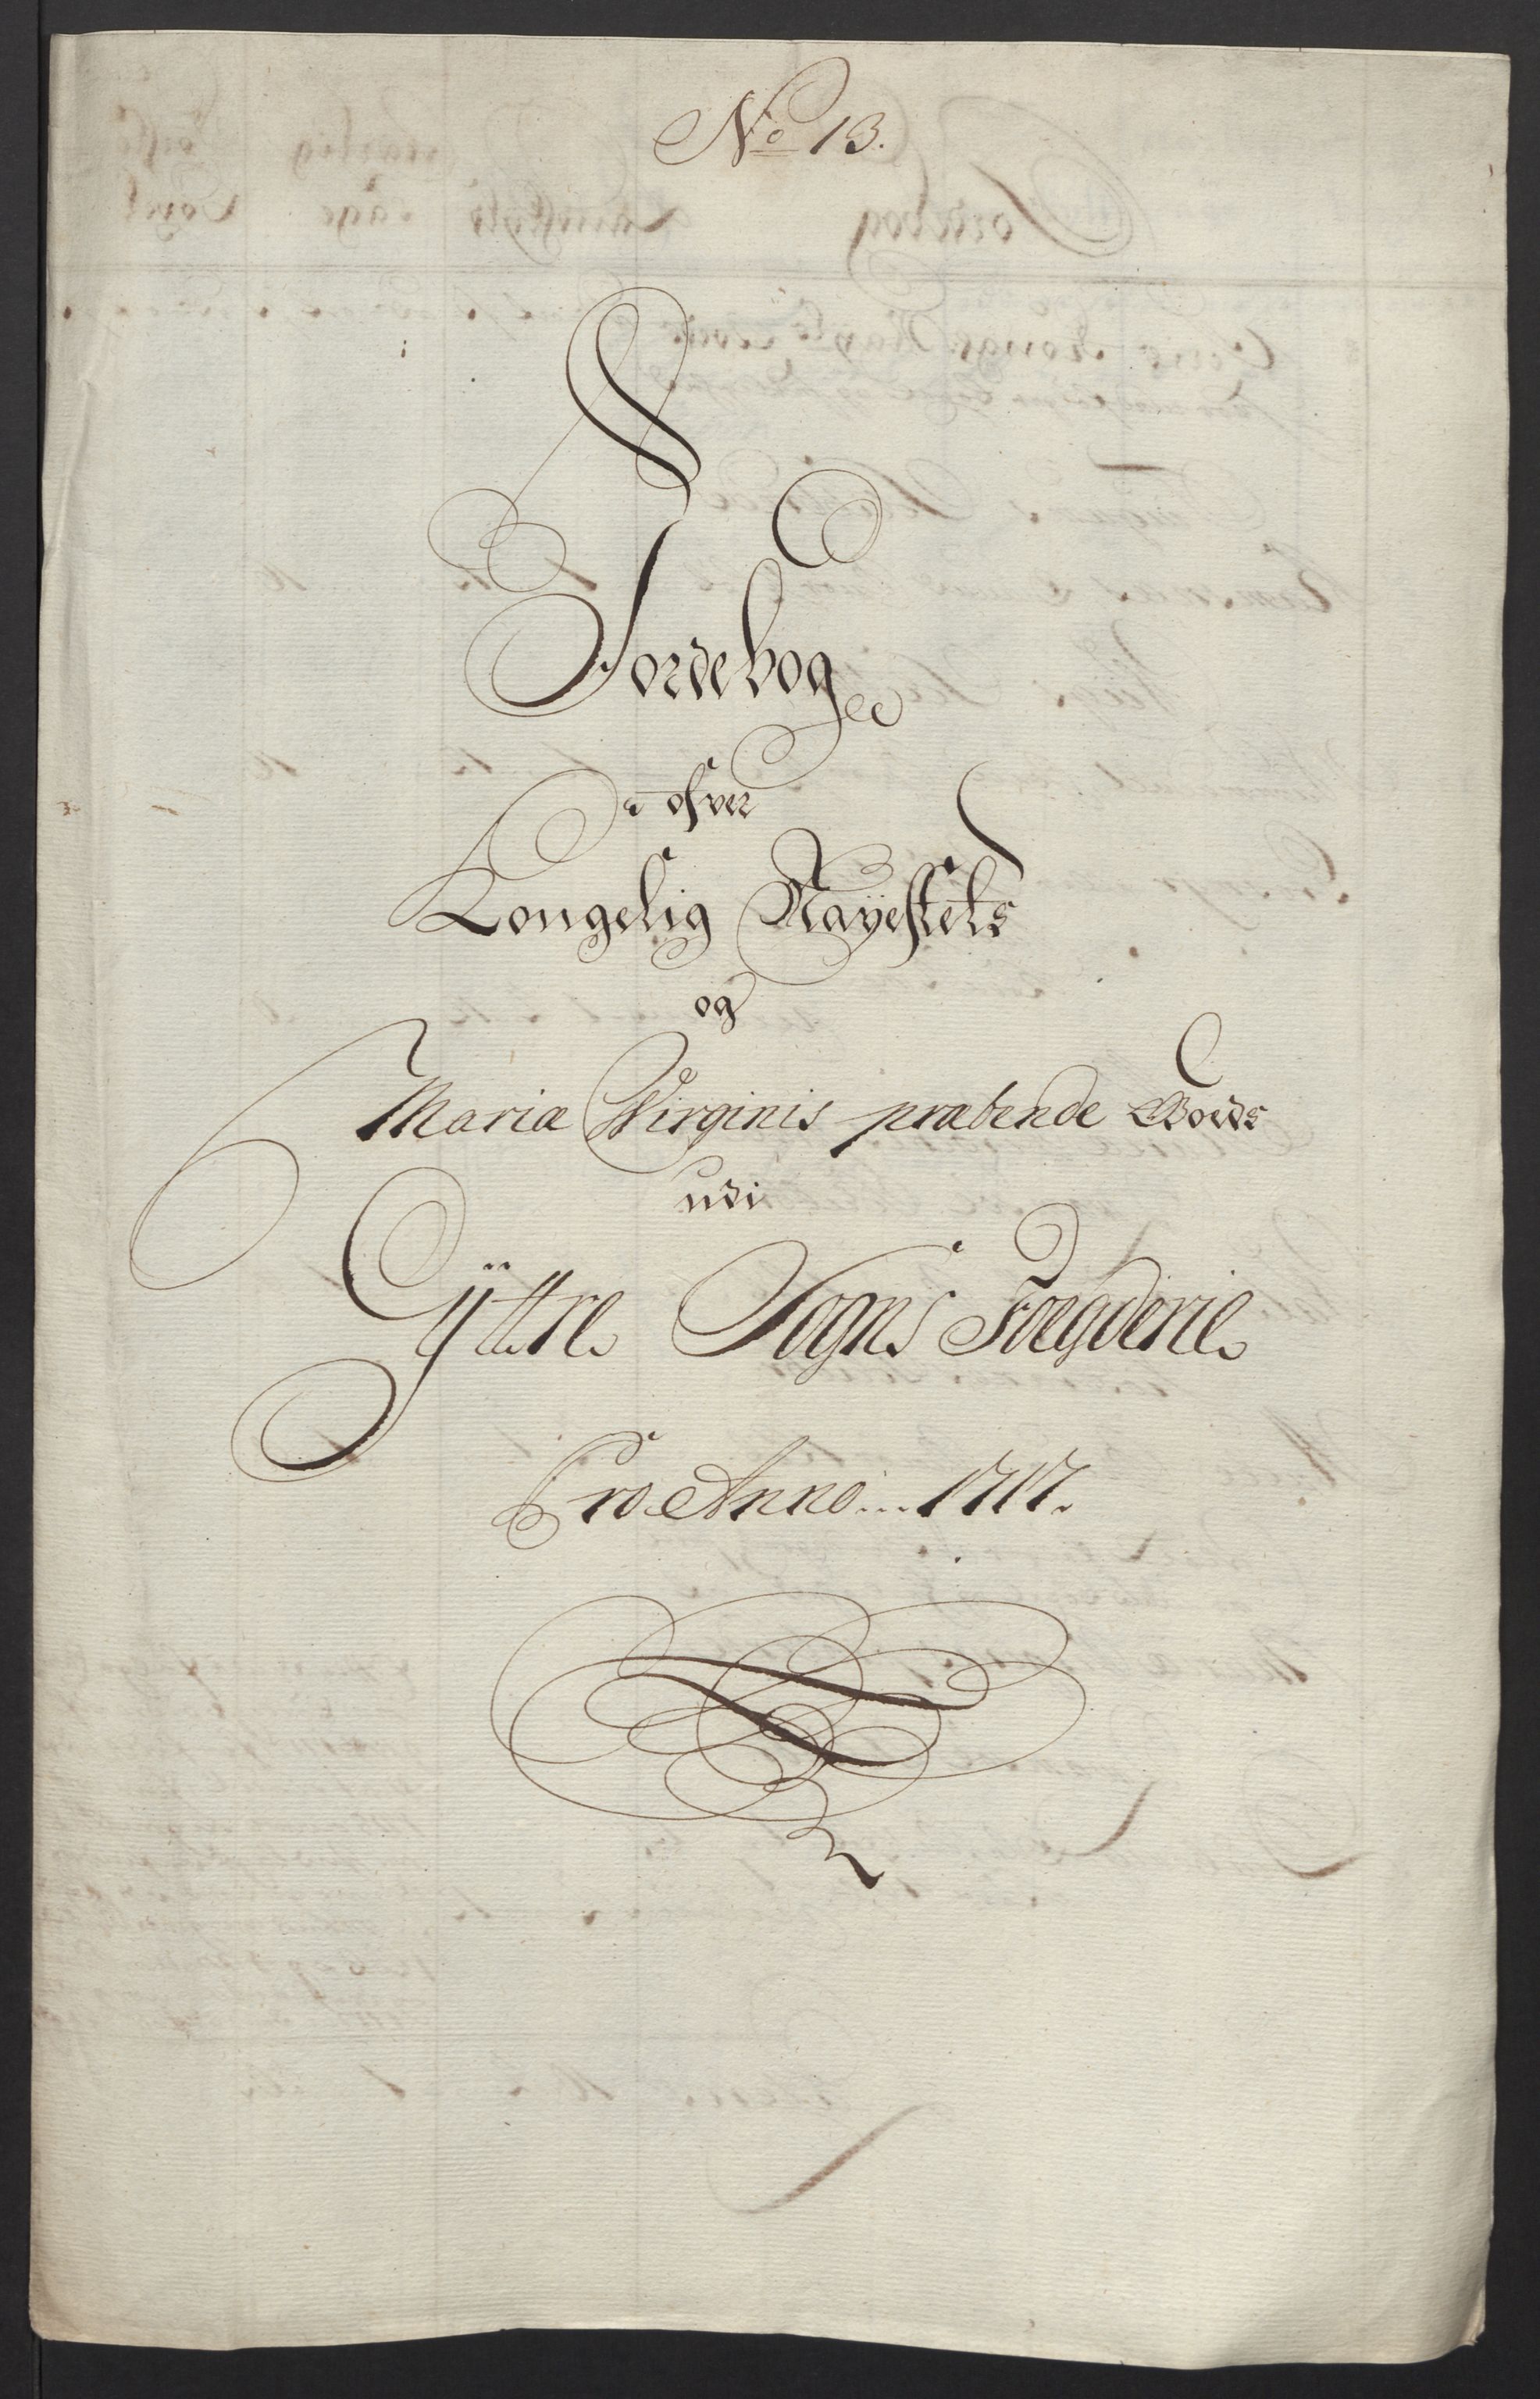 No 13.
Jordebog
ofver
Kongelig Mayestets
og
Mariæ Virginis præbende Goeds
udi
Yttre Sogns Foegderie
Pro Anno... 1717.